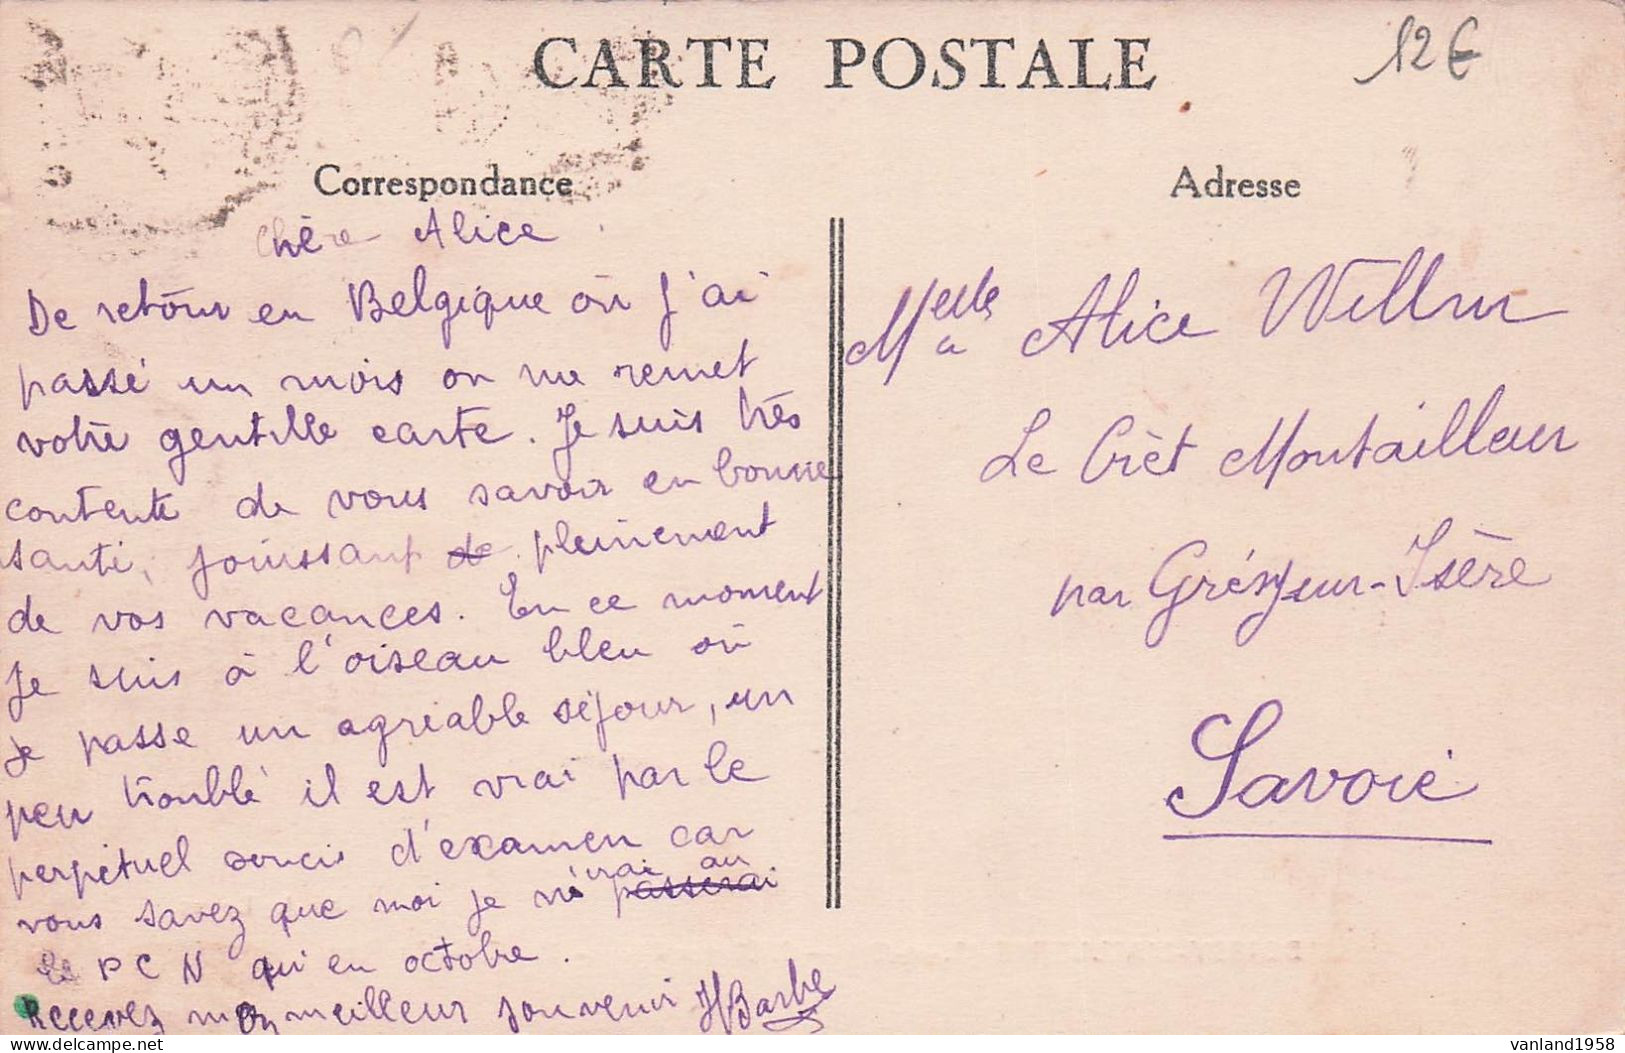 CARTE POSTALE
12€
Correspondance
Chère Alice
De retour en Belgique où j'ai
passé un mois on me remet
votre gentille carte. Je suis très
contente de vous savoir en bonne
santé, jouissant de pleinement
de vos vacances. En ce moment
je suis à l'oiseau bleu où
je passe un agréable séjour, un
peu troublé il est vrai par le
perpétuel soucis d'examen car
vous savez que moi je n'irai au passerai
le PCN qu'en octobre.
Recevez mon meilleur souvenir HBarbe
Adresse
Melle Alice Willm
à
Le Crêt Montailleur
par Grésy sur-Isère
Savoie
vanland1958